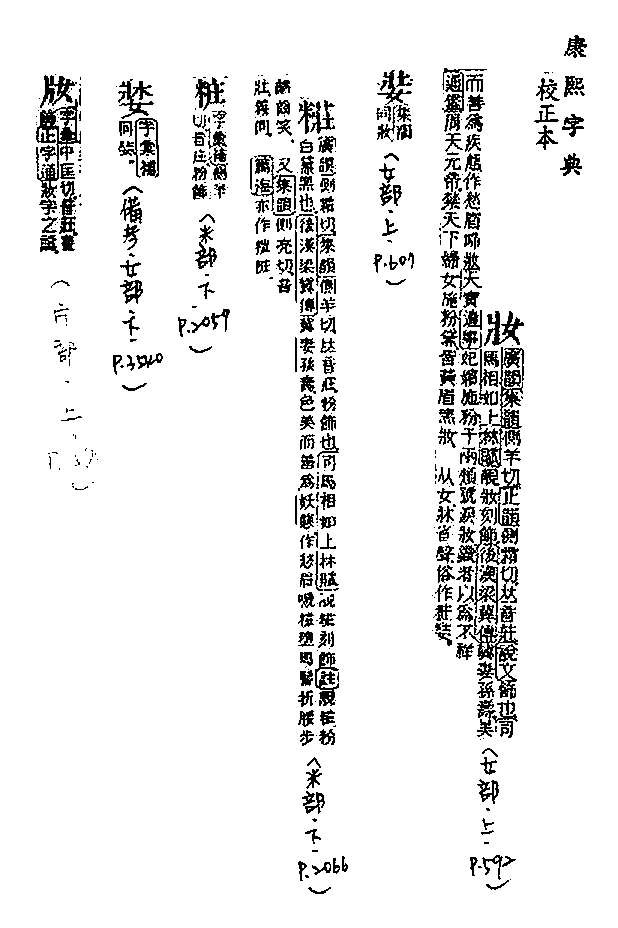 康熙字典
校正本
妝 廣韻集韻側羊切正韻側霜切𠀤音莊說文飾也司
馬相如上林賦靚妝刻飾後漢梁冀傳冀妻孫壽美
而善為妖態作愁眉啼妝天寶遺事妃嬪施粉于兩頰號淚妝識者以為不祥
通鑑周天元帝禁天下婦女施粉黛皆黃眉黑妝 从女牀省聲俗作粧𡚸
(女部.上.P.592)
娤 集韻
同妝
(女部.上.P.607)
糚 廣韻側霜切集韻側羊切𠀤音莊粉飾也司馬相如上林賦靚糚刻飾註靚糚粉
白黛黑也後漢梁冀傳冀妻孫壽色美而善為妖態作愁眉啼糚墮馬髻折腰步
齲齒笑 又集韻側亮切音
壯義同 篇海亦作粧𥹫
(米部.下.P.2066)
粧 字彙側羊
切音莊粉飾
(米部.下.P.2059)
字彙補
同裝
(備考.女部.下.P.3540)
字彙中匡切音莊
正字通妝字之譌
部.上